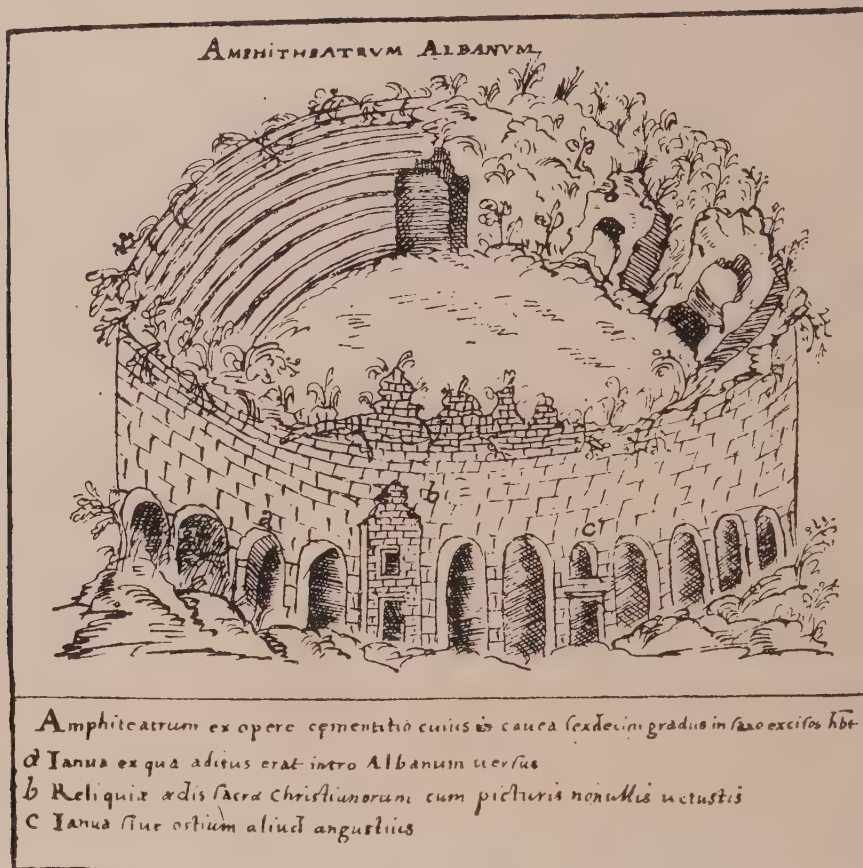 AMPHITHEATRVM ALBANVM
a
b
c
Amphiteatrum ex opere cęmentitio cuius in cauea sexdecim gradus in saxo excisos hb̄t
a Ianua ex qua aditus erat intro Albanum uersus
b Reliquiæ ædis sacræ Christianorum cum picturis nonullis uetustis
c Ianua siue ostium aliud angustius